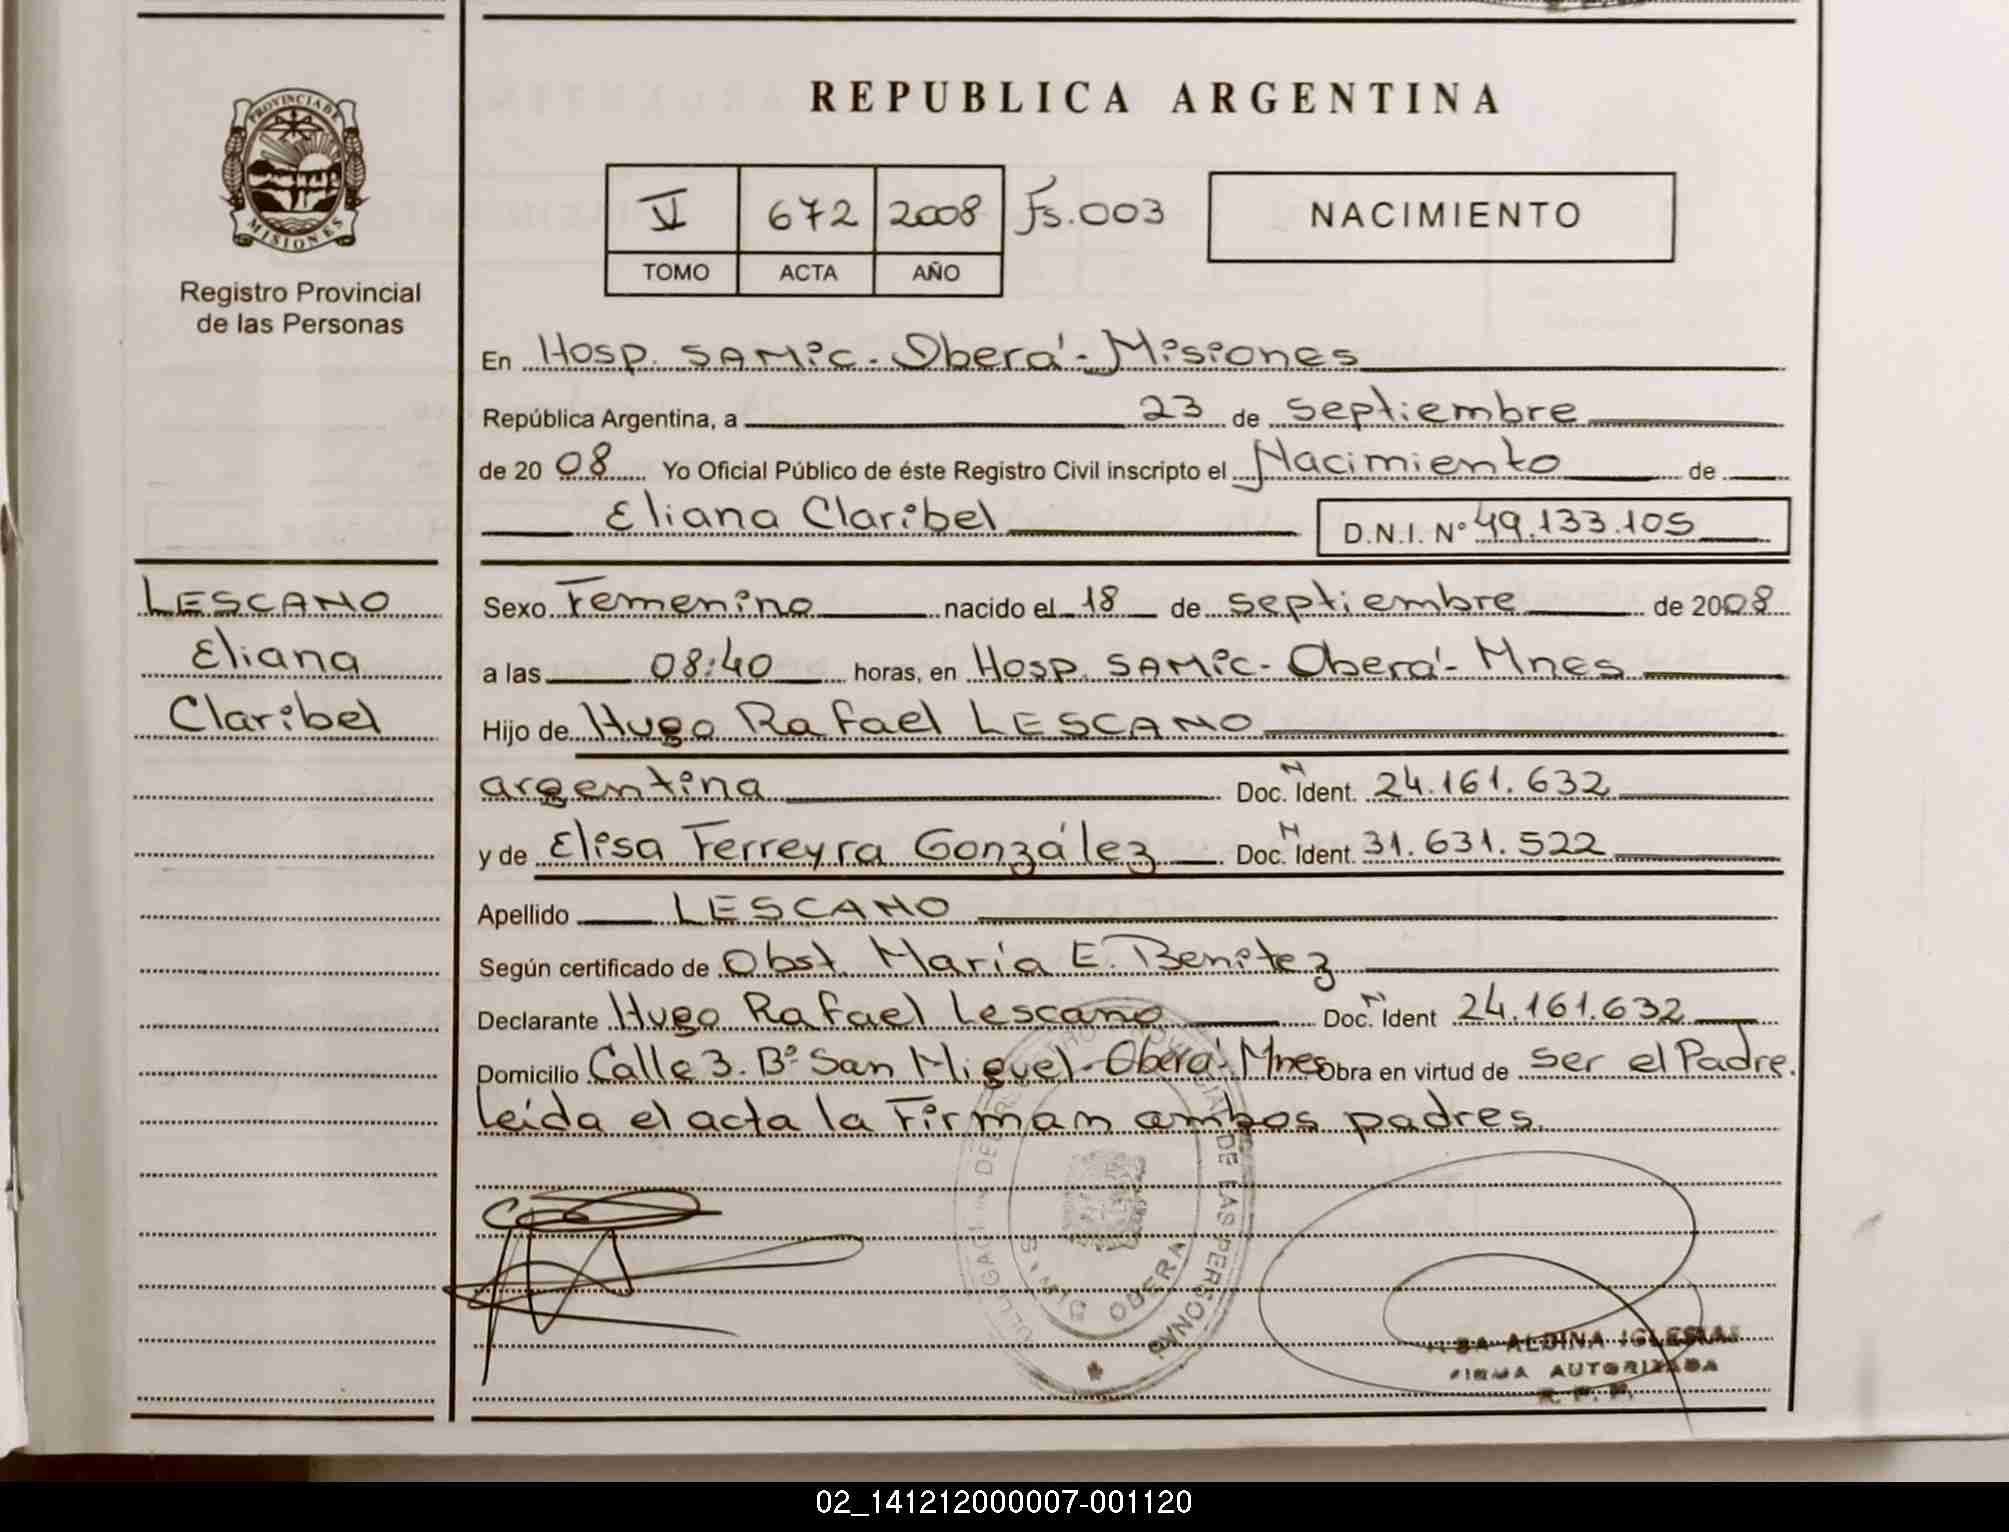 REPUBLICA ARGENTINA
PROVINCIA DE
MISIONES
Registro Provincial
de las Personas
V 672 2008 Fs. 003
TOMO ACTA AÑO
NACIMIENTO
En Hosp. SAMIC - Oberá - Misiones
República Argentina, a 23 de septiembre
de 20 08 Yo Oficial Público de éste Registro Civil inscripto el Nacimiento de
Eliana Claribel D.N.I. Nº 49.133.105
LESCANO
Eliana
Claribel
Sexo Femenino nacido el 18 de septiembre de 2008
a las 08:40 horas, en Hosp. SAMIC - Oberá - Mnes
Hijo de Hugo Rafael LESCANO
argentina Doc. N Ident. 24.161.632
y de Elisa Ferreyra González Doc. N Ident. 31.631.522
Apellido LESCANO
Según certificado de Obst. María E. Benitez
Declarante Hugo Rafael Lescano Doc. N Ident 24.161.632
Domicilio Calle 3. Bº San Miguel - Oberá - Mnes Obra en virtud de ser el Padre.
Leída el acta la Firman ambos padres.
DE LAS PERSONAS
OBERA
ALDINA IGLESIAS
FIRMA AUTORIZADA
R. P. P.
02_141212000007-001120